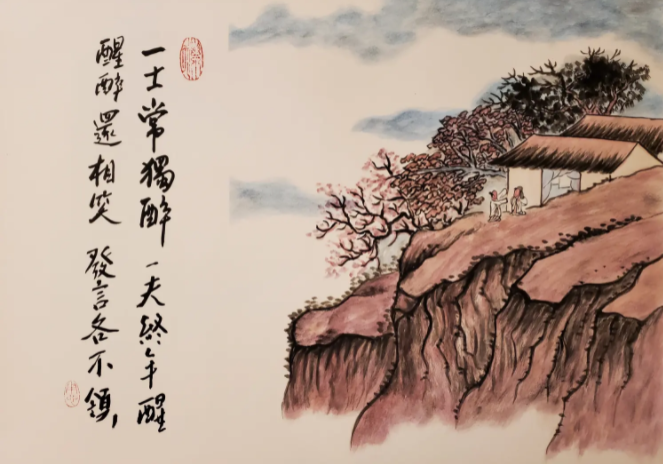 一士常獨醉 一夫終年醒
醒醉還相笑 發言各不領,